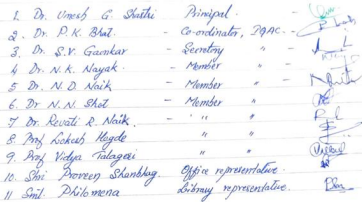 1. Dr. Umesh G. Shastri Principal.
2. Dr. P. K. Bhat. - Co-ordinator, IQAC. -
3. Dr. S.V. Gaonkar - Secretory " -
4. Dr. N. K. Nayak. - Member " -
5. Dr. N. D. Naik - Member " -
6. Dr. N. N. Shet - Member "
7. Dr. Revati R. Naik. - " "
8. Prof Lokesh Hegde " "
9. Prof Vidya Talageri " "
10. Shri Praveen Shanbhag. Office representative.
11. Smt. Philomena Library representative.